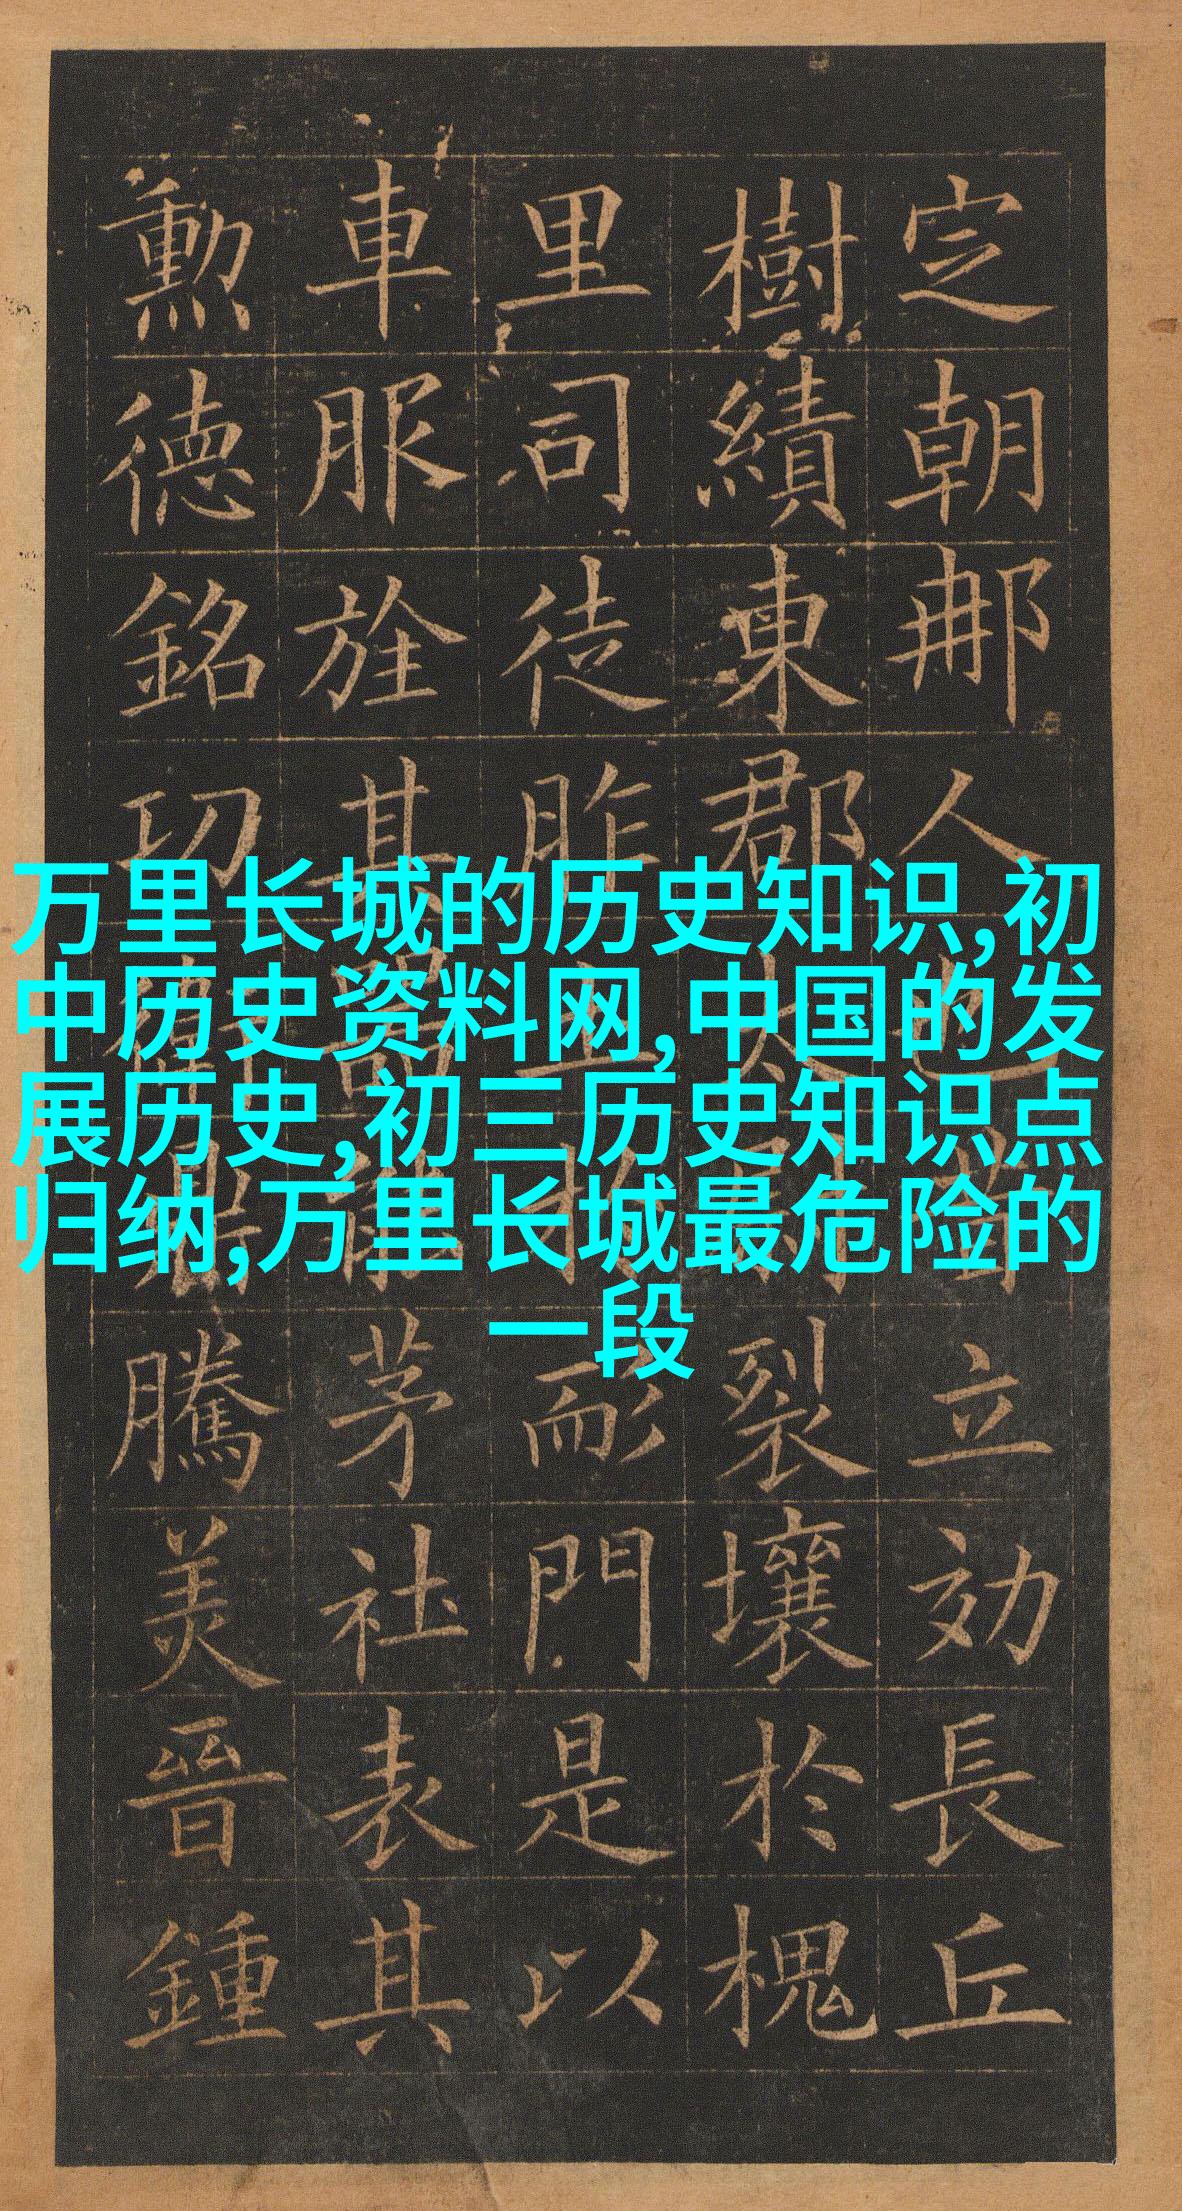 定朝那人也昔立効長丘
樹績東郡太尉裂壤於槐
里司徒胙土於耏門是以
車服旌其器能茅社表其
勳德銘功衛鼎騰美晉鍾
万里长城的历史知识,初
中历史资料网,中国的发
展历史,初三历史知识点
归纳,万里长城最危险的
一段